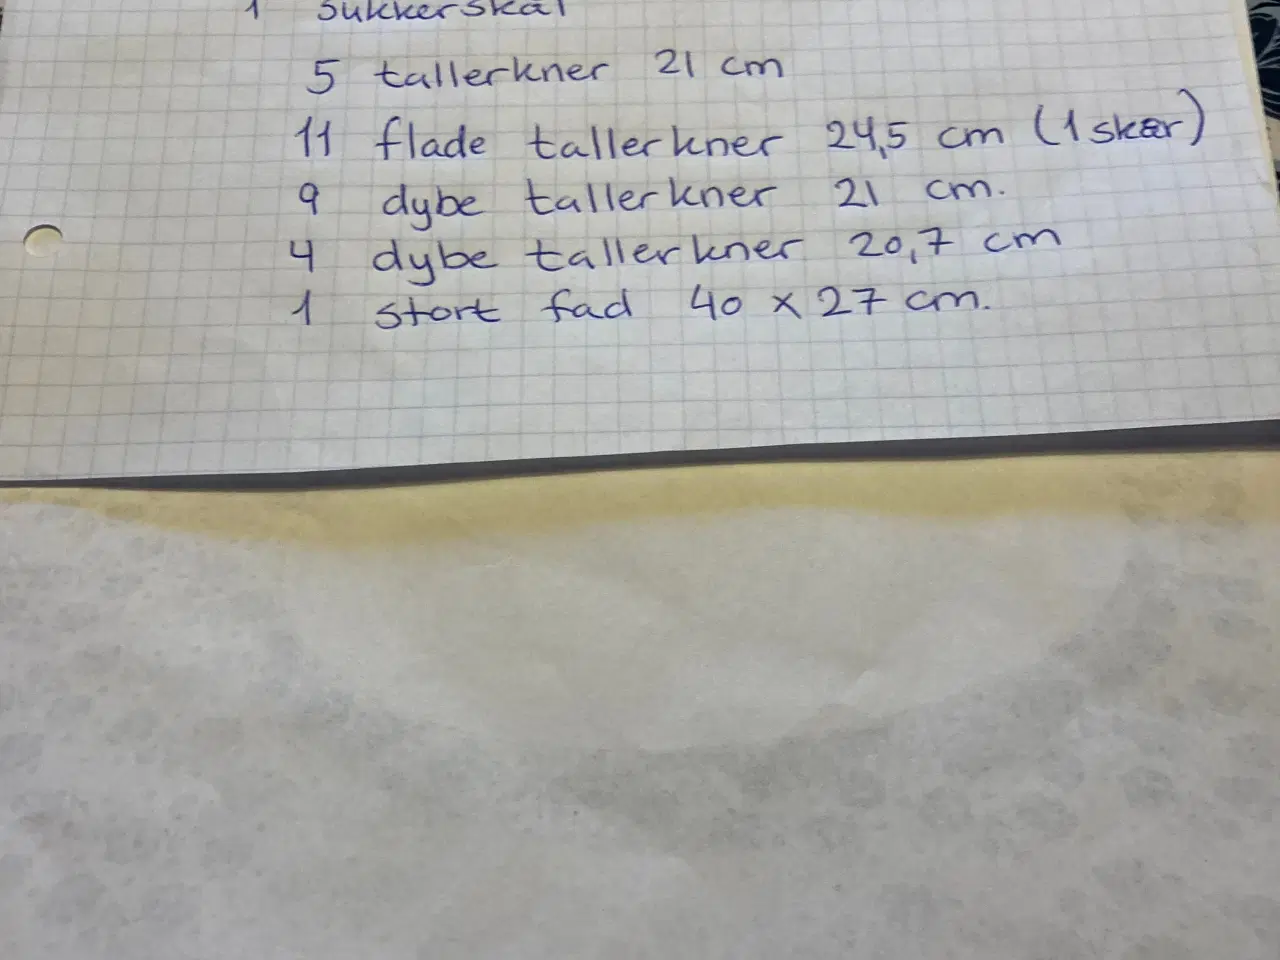 1 sukkerskål
5 tallerkner 21 cm
11 flade tallerkner 24,5 cm (1 skær)
9 dybe tallerkner 21 cm.
4 dybe tallerkner 20,7 cm
1 stort fad 40 x 27 cm.